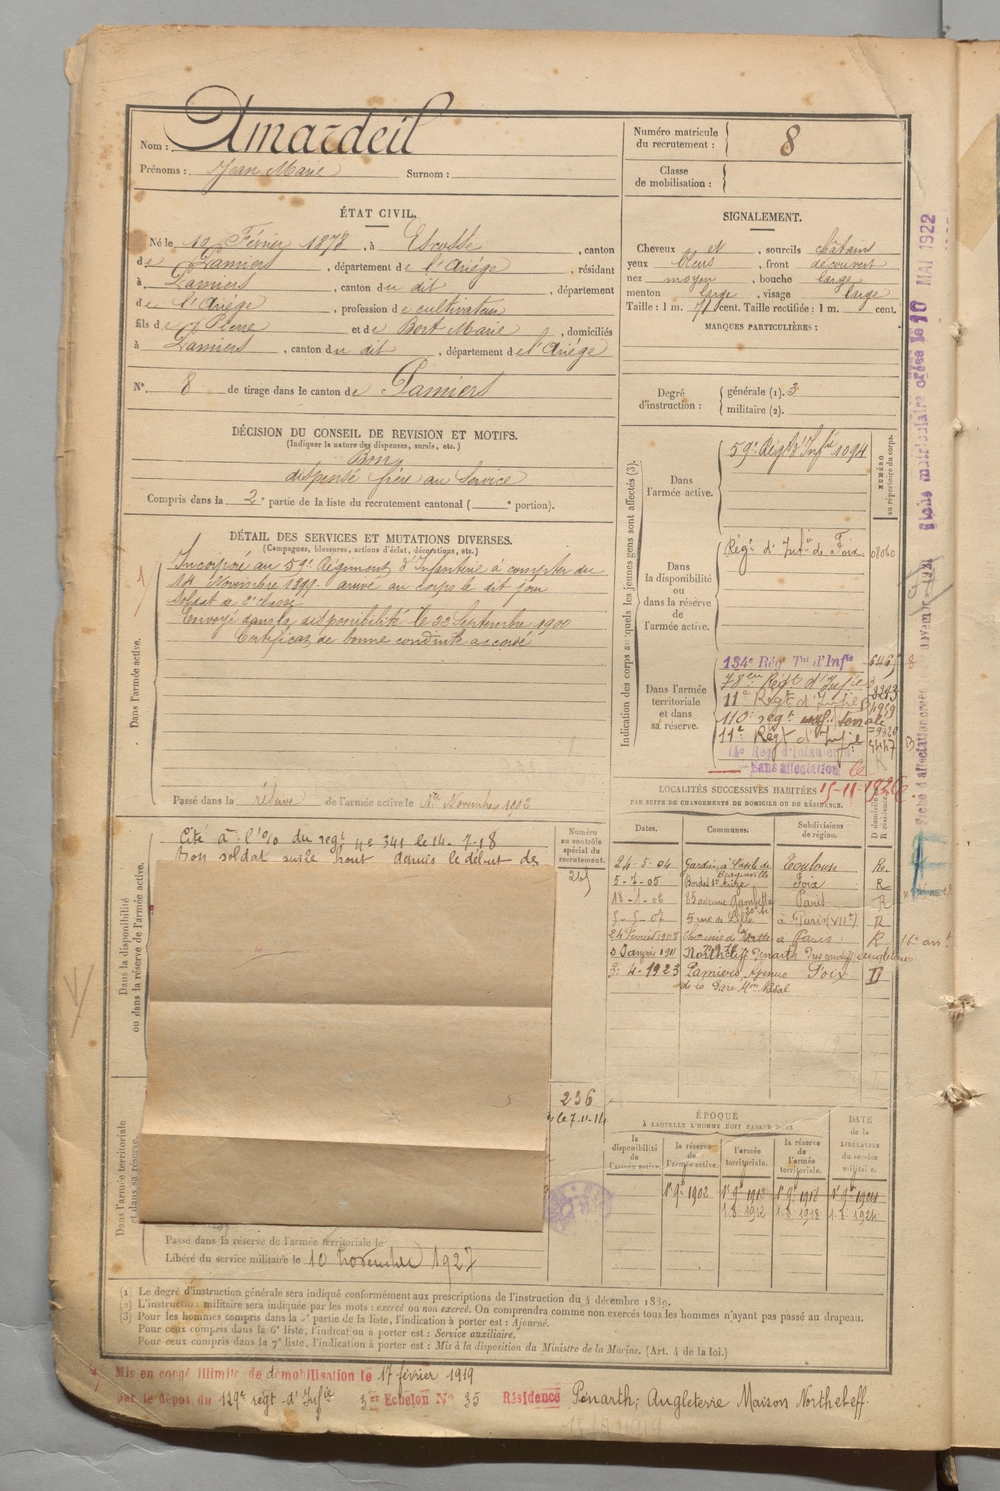 Nom : Amardeil
Prénoms : Jean Marie Surnom :
Numéro matricule du recrutement : 8
Classe de mobilisation :
ÉTAT CIVIL.
Né le 10 Février 1878, à Escosse, canton
de Pamiers, département de l'Ariége, résidant
à Pamiers, canton du dit, département
de l'Ariége, profession de cultivateur
fils de Pierre et de Bort Marie, domiciliés
à Pamiers, canton du dit, département de l'Ariége
N° 8 de tirage dans le canton de Pamiers
DÉCISION DU CONSEIL DE REVISION ET MOTIFS.
(Indiquer la nature des dispenses, sursis, etc.)
Bon
dispensé frère au Service
Compris dans la 2e partie de la liste du recrutement cantonal ( e portion).
DÉTAIL DES SERVICES ET MUTATIONS DIVERSES.
(Campagnes, blessures, actions d'éclat, décorations, etc.)
Dans l'armée active.
Incorporé au 59e Régiment d'Infanterie à compter du
14 Novembre 1899. arrivé au corps le dit jour
Soldat de 2e classe
Envoyé dans la disponibilité le 22 Septembre 1900
Certificat de bonne conduite accordé
Passé dans la réserve de l'armée active le 1er Novembre 1902
Dans la disponibilité ou dans la réserve de l'armée active.
Cité à l'% du regt ne 341 le 14-7-18
Bon soldat sur le front depuis le début de
Numéro au contrôle spécial du recrutement.
236
le 7.11.14
Dans l'armée territoriale et dans sa réserve.
Passé dans la réserve de l'armée territoriale le
Libéré du service militaire le 10 novembre 1927
SIGNALEMENT.
Cheveux et, sourcils châtains
yeux bleus, front découvert
nez moyen, bouche large
menton large, visage large
Taille : 1 m. 71 cent. Taille rectifiée : 1 m. cent.
MARQUES PARTICULIÈRES :
Degré d'instruction : générale (1). 3
militaire (2).
Indication des corps auxquels les jeunes gens sont affectés (3).
NUMÉRO au répertoire du corps.
Dans l'armée active.
59e Régt d'Infie 1094
Dans la disponibilité ou dans la réserve de l'armée active.
Régt d'Infie de Foix 08060
Dans l'armée territoriale et dans sa réserve.
134e Rég Tal d'Infie
78eme Régt d'Infie
11e Régt d'Infie
110e regt
11e Régt d'Infie
sans affectation
LOCALITÉS SUCCESSIVES HABITÉES 15-11-1926
PAR SUITE DE CHANGEMENTS DE DOMICILE OU DE RÉSIDENCE.
Dates. Communes. Subdivisions de région. D domicile R résidence
24-5-04 Toulouse Re.
5-7-05 Foix R
18-1-06 85 avenue Gambetta Paris R
5-5-07 5 rue de Lille à Paris (VIIe) R
24 Février 1908 à Paris R 16e arrt
3 Janvier 1911 Penarth Angleterre
3-4-1923 Pamiers Avenue Foix D
de la Gare
ÉPOQUE
À LAQUELLE L'HOMME DOIT PASSER DANS
la disponibilité de l'armée active.
la réserve de l'armée active.
l'armée territoriale.
la réserve de l'armée territoriale.
DATE de la LIBÉRATION du service militaire.
1er 9bre 1902 1er 9bre 1912 1er 9bre 1918 1er 9bre 1924
1.8.1912 1.8.1918 1.8.1924
(1) Le degré d'instruction générale sera indiqué conformément aux prescriptions de l'instruction du 4 décembre 1889.
(2) L'instruction militaire sera indiquée par les mots : exercé ou non exercé. On comprendra comme non exercés tous les hommes n'ayant pas passé au drapeau.
(3) Pour les hommes compris dans la 5e partie de la liste, l'indication à porter est : Ajourné.
Pour ceux compris dans la 6e liste, l'indication à porter est : Service auxiliaire.
Pour ceux compris dans la 7e liste, l'indication à porter est : Mis à la disposition du Ministre de la Marine. (Art. 4 de la loi.)
Mis en congé illimité de démobilisation le 17 février 1919
par le dépot du 129e régt d'Infie 3er Echelon N° 35 Résidence Penarth; Angleterre Maison Northcleff.
10 MAI 1922